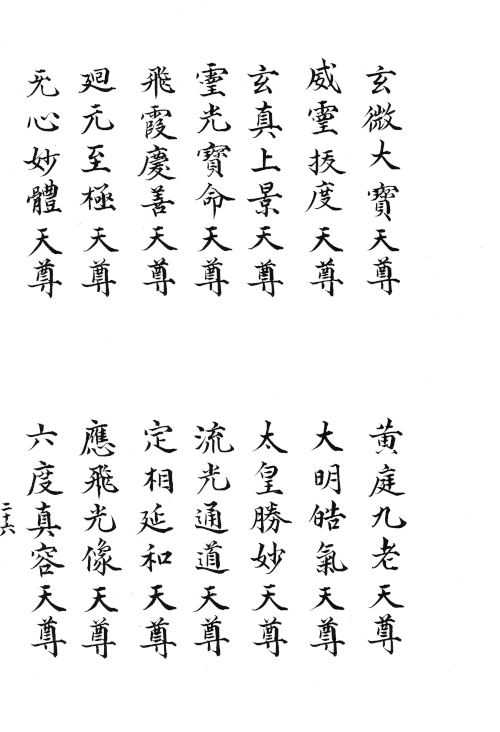 玄微大寶天尊
黃庭九老天尊
威霊拔度天尊
大明皓氣天尊
玄真上景天尊
太皇勝妙天尊
霊光寶命天尊
流光通道天尊
飛霞慶善天尊
定相延和天尊
廻元至極天尊
應飛光像天尊
无心妙體天尊
六度真容天尊
二十六